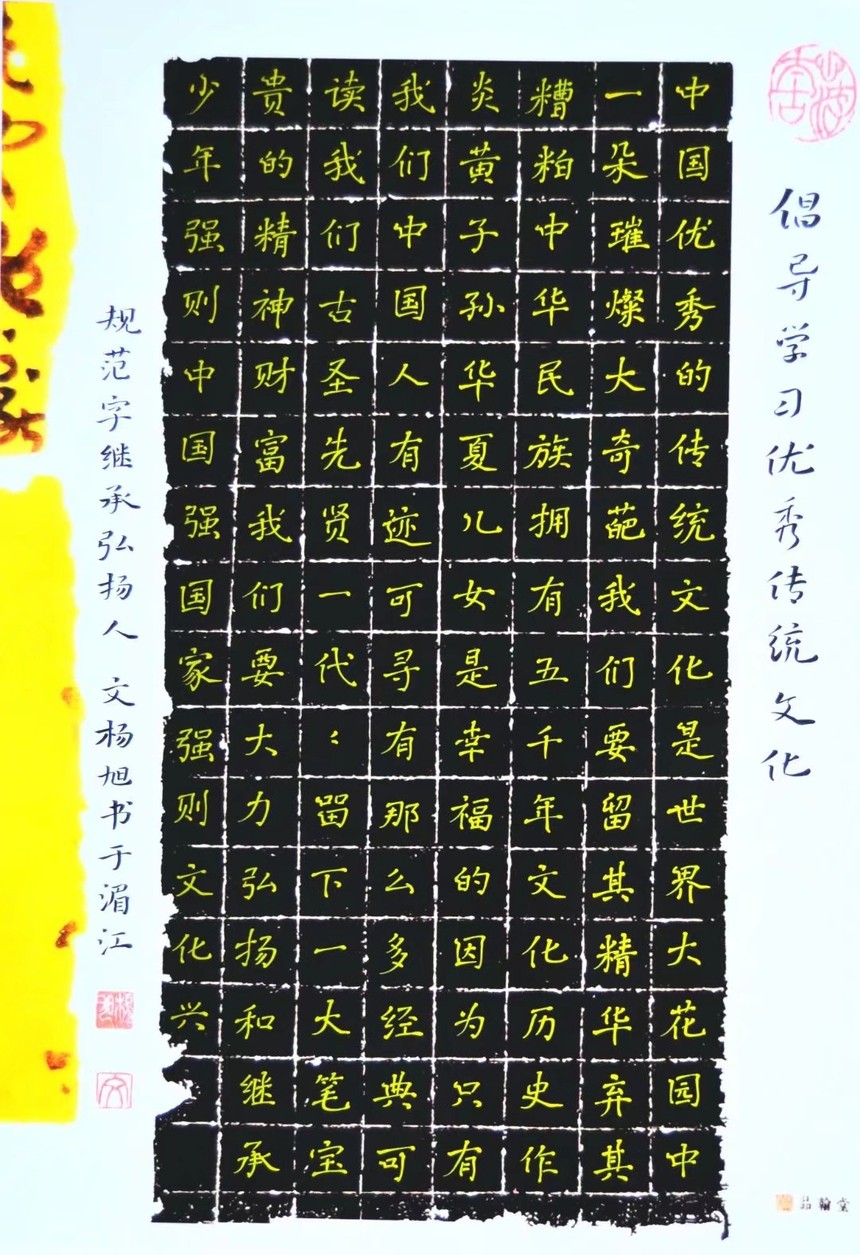 倡导学习优秀传统文化
中国优秀的传统文化是世界大花园中
一朵璀燦大奇葩我们要留其精华弃其
糟粕中华民族拥有五千年文化历史作
炎黄子孙华夏儿女是幸福的因为只有
我们中国人有迹可寻有那么多经典可
读我们古圣先贤一代〻留下一大笔宝
贵的精神财富我们要大力弘扬和继承
少年强则中国强国家强则文化兴
规范字继承弘扬人 文杨旭书于湄江
品翰堂